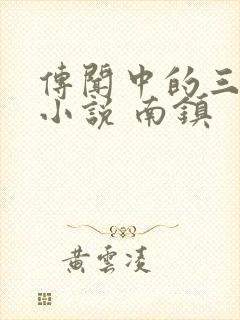 傳聞中的三
小說 南鎮
黃雲凌